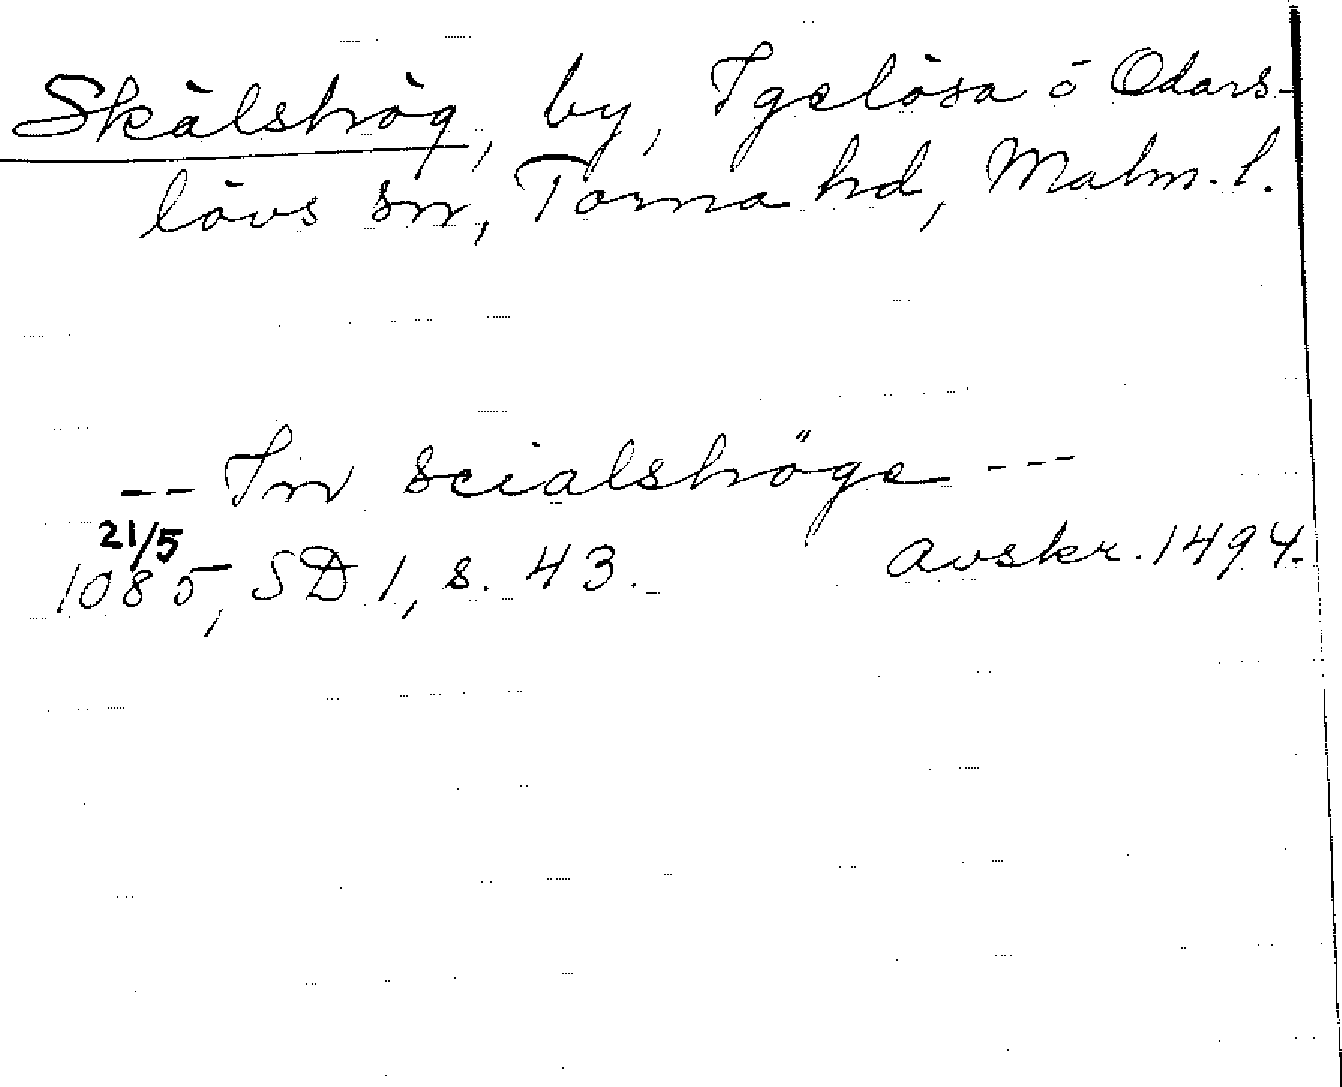 Skälshög, by, Igelösa o Odars-
lövs sn, Torna hd, Malm. l.
-- In scialshöge ---
21/5
1085, SD 1, s. 43. avskr. 1494.